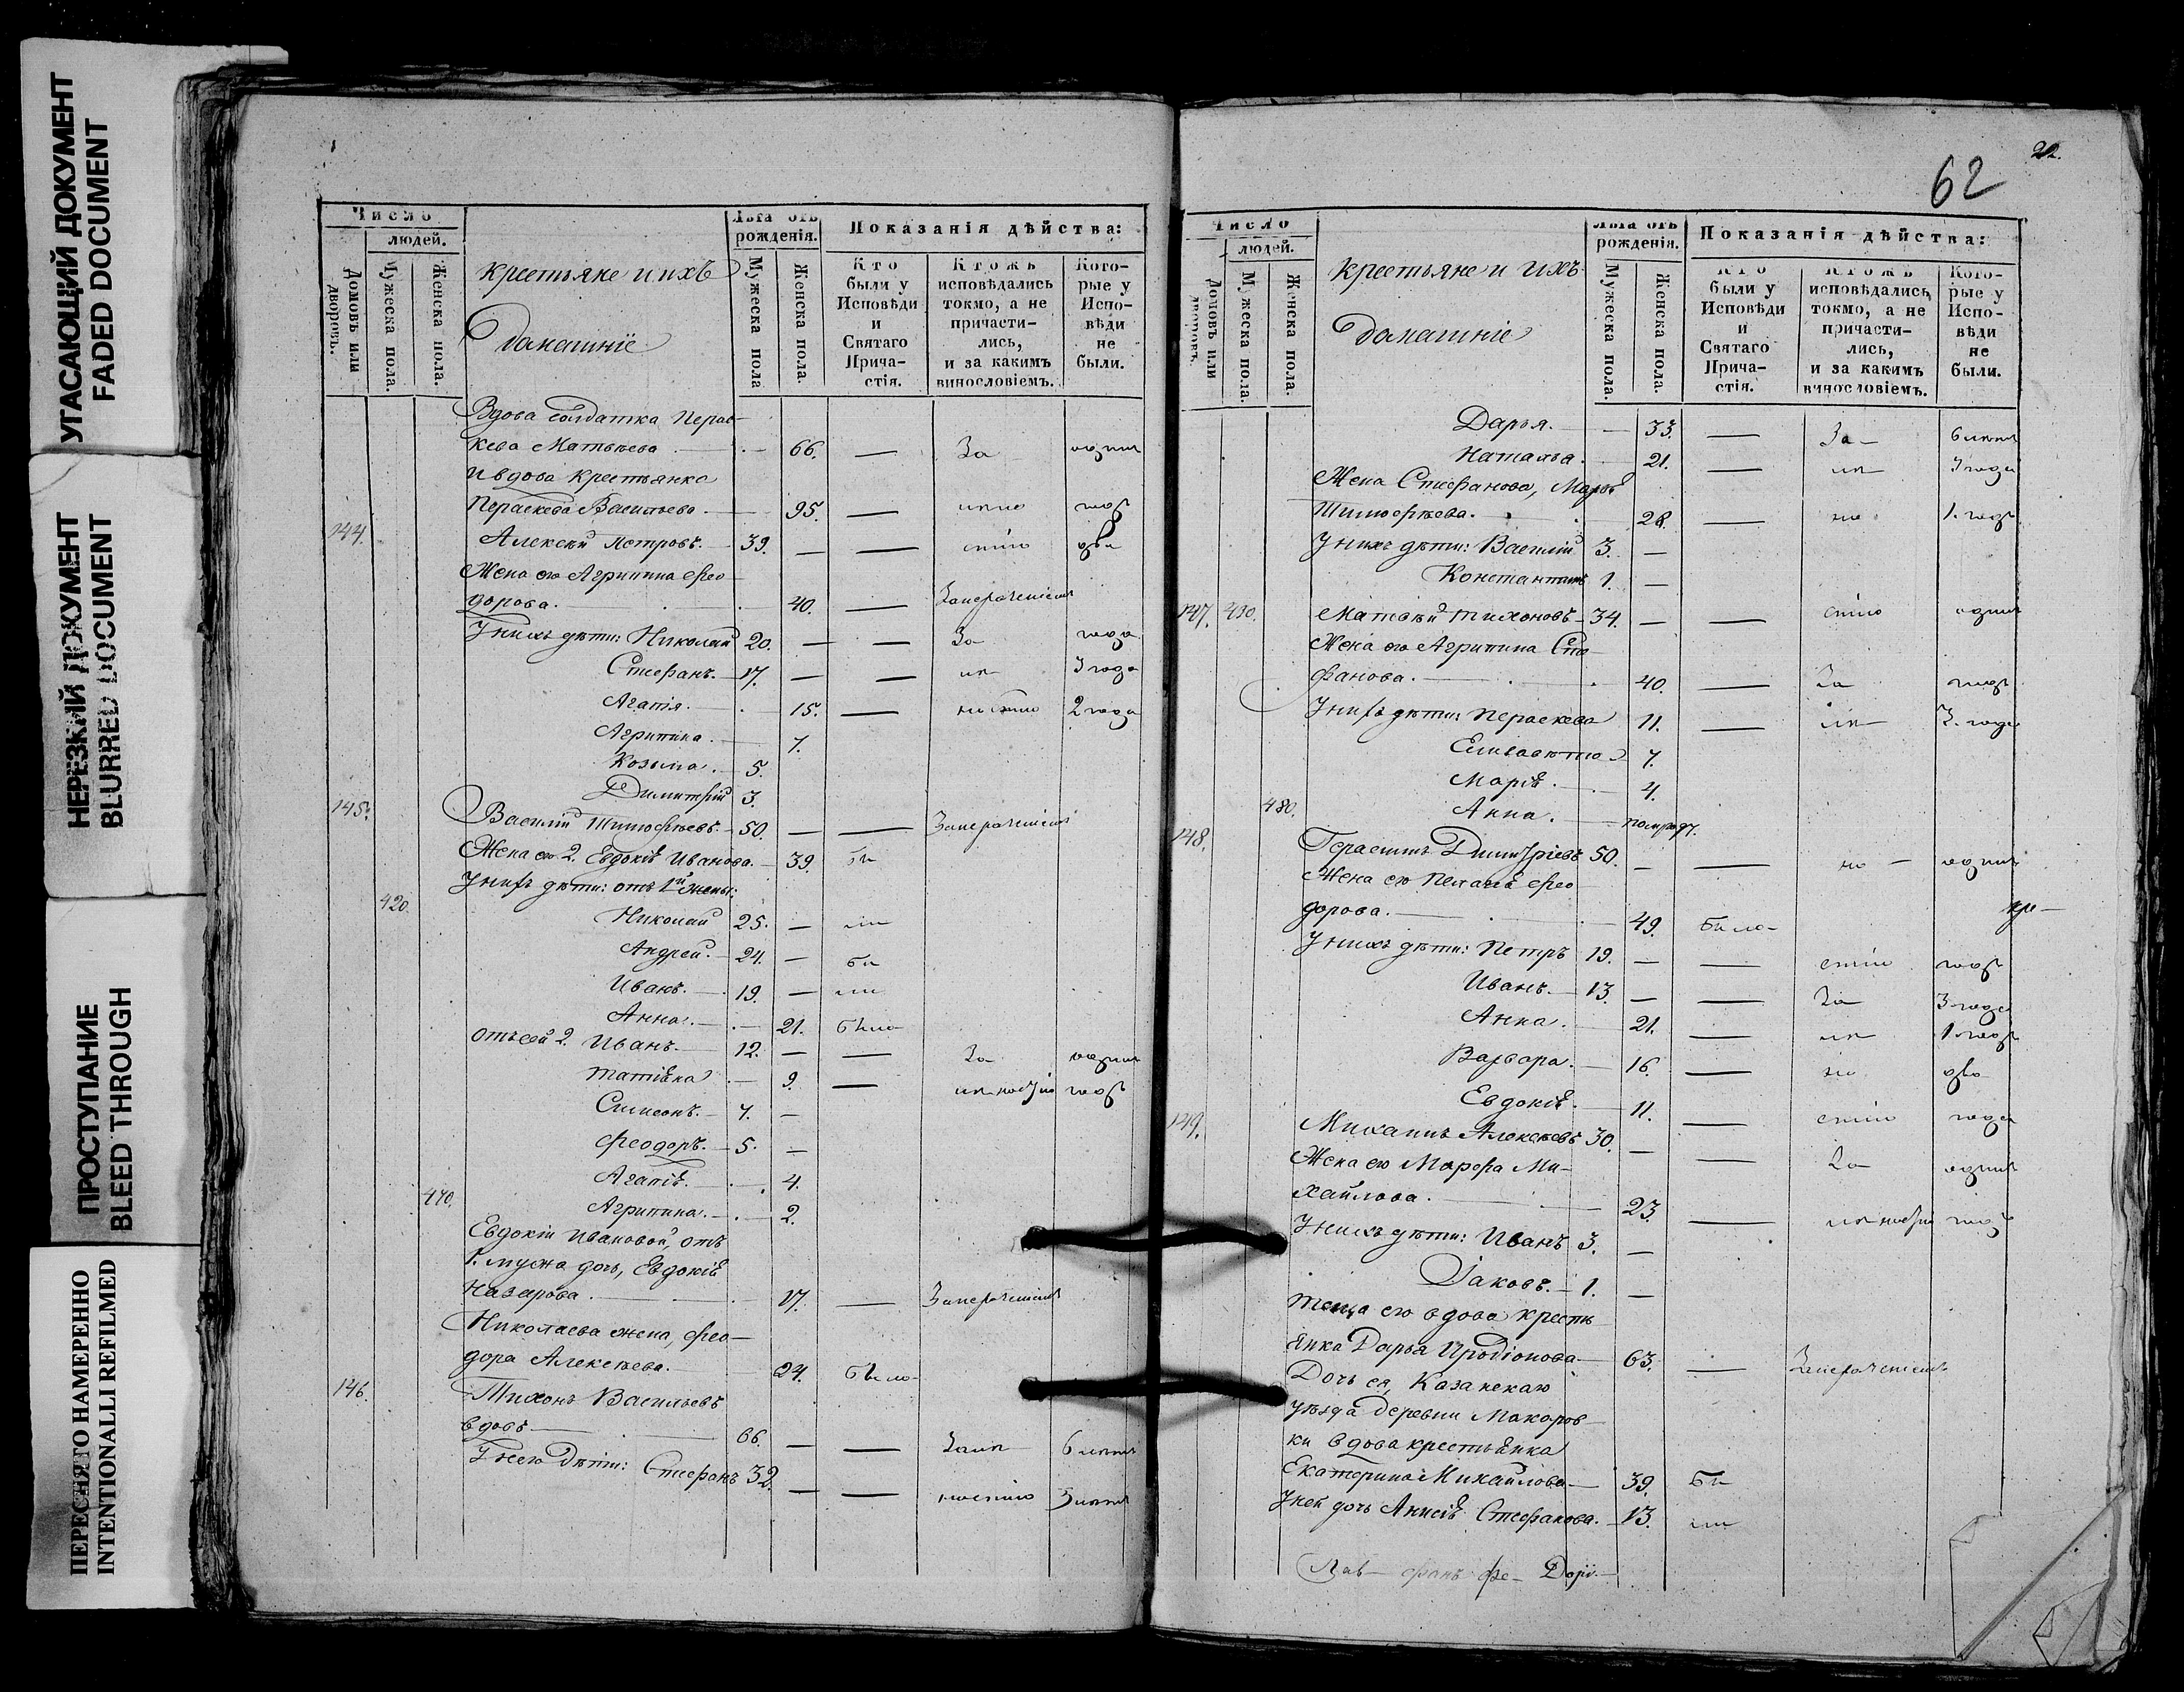 УГАСАЮЩИЙ ДОКУМЕНТ
FADED DOCUMENT
НЕРЕЗКИЙ ДОКУМЕНТ
BLURRED DOCUMENT
ПРОСТУПАНИЕ
BLEED THROUGH
ПЕРЕСНЯТО НАМЕРЕННО
INTENTIONALLI REFILMED
Число
людей.
Домовъ или дворовъ.
Мужеска пола.
Женска пола.
крестьяне и ихъ
домашніе
Лѣта отъ рожденія.
Мужеска пола
Женска пола.
Показанія дѣйства:
Кто были у Исповѣди и Святаго Прича-стія.
Ктожъ исповѣдались токмо, а не причасти-лись, и за какимъ винословіемъ.
Кото-рые у Испо-вѣди не были.
Вдова солдатка Перас-
кева Матвѣева 66. — За одинъ
и вдова крестьянка
Пераскева Васильева 95. — годъ
144. Алексѣй Петровъ. 39. — — два
Жена его Агрипина Фео-
дорова. 40. —
У нихъ дѣти: Николай 20. — — За года
Стефанъ. 17. — — 3 года
Агапія. 15. — 2 года
Агрипина. 7.
Козьма. 5.
Димитрій 3.
145. Василій Тимофѣевъ. 50. — —
Жена его 2. Евдокія Иванова. 39. Бы
У нихъ дѣти: отъ 1й жены:
420. Николай 25. — ли
Андрей. 24. — Бы
Иванъ. 19. — ли
Анна. 21. Была
отъ сей 2. Иванъ. 12. — — За одинъ
Татіана 9. — годъ
Симеонъ. 7. —
Феодоръ. 5. —
Агапія. 4.
470. Агрипина. 2.
Евдокіи Ивановой, отъ
1. мужа дочь, Евдокія
Назарова. 17. —
Николаева жена, Фео-
дора Алексѣева. 24. Была
146. Тихонъ Васильевъ
вдовъ 66. — — 6 лѣтъ
У него дѣти: Стефанъ 32. — — 5 лѣтъ
62
22.
Число
людей.
Домовъ или дворовъ.
Мужеска пола.
Женска пола.
крестьяне и ихъ
домашніе
Лѣта отъ рожденія.
Мужеска пола.
Женска пола.
Показанія дѣйства:
Кто были у Исповѣди и Святаго Прича-стія.
Ктожъ исповѣдались токмо, а не причасти-лись, и за какимъ винословіемъ.
Кото-рые у Испо-вѣди не были.
Дарья. 33. — За 6 лѣтъ
Наталья. 21. — 3 года
Жена Стефанова, Марѳа
Тимофѣева. 28. — 1. годъ
У нихъ дѣти: Василій 3. —
Константинъ 1. —
147. 430. Матвѣй Тихоновъ 34. — — одинъ
Жена его Агрипина Сте-
фанова. 40. — За годъ
У нихъ дѣти: Пераскева 11. — 3. года
Елисавета 7.
Марія. 4.
480. Анна. полгода.
148. Герасимъ Димитріевъ 50. — — одинъ
Жена его Пелагія Фео-
дорова. 49. Была
У нихъ дѣти: Петръ 19. — — годъ
Иванъ. 13. — — За 3 года
Анна. 21. — 1 годъ
Варвара. 16. — два
Евдокія. 11. — года
149. Михаилъ Алексѣевъ 30. — — За одинъ
Жена его Марфа Ми-
хайлова. 23. — годъ
У нихъ дѣти: Иванъ 3. —
Іаковъ. 1. —
Теща его вдова кресть
янка Дарья Иродіонова 63. —
Дочь ея, Казанскаго
уѣзда деревни Макаров-
ки вдова крестьянка
Екатерина Михайлова 39. Бы
У ней дочь Анисія Стефанова. 13. ли